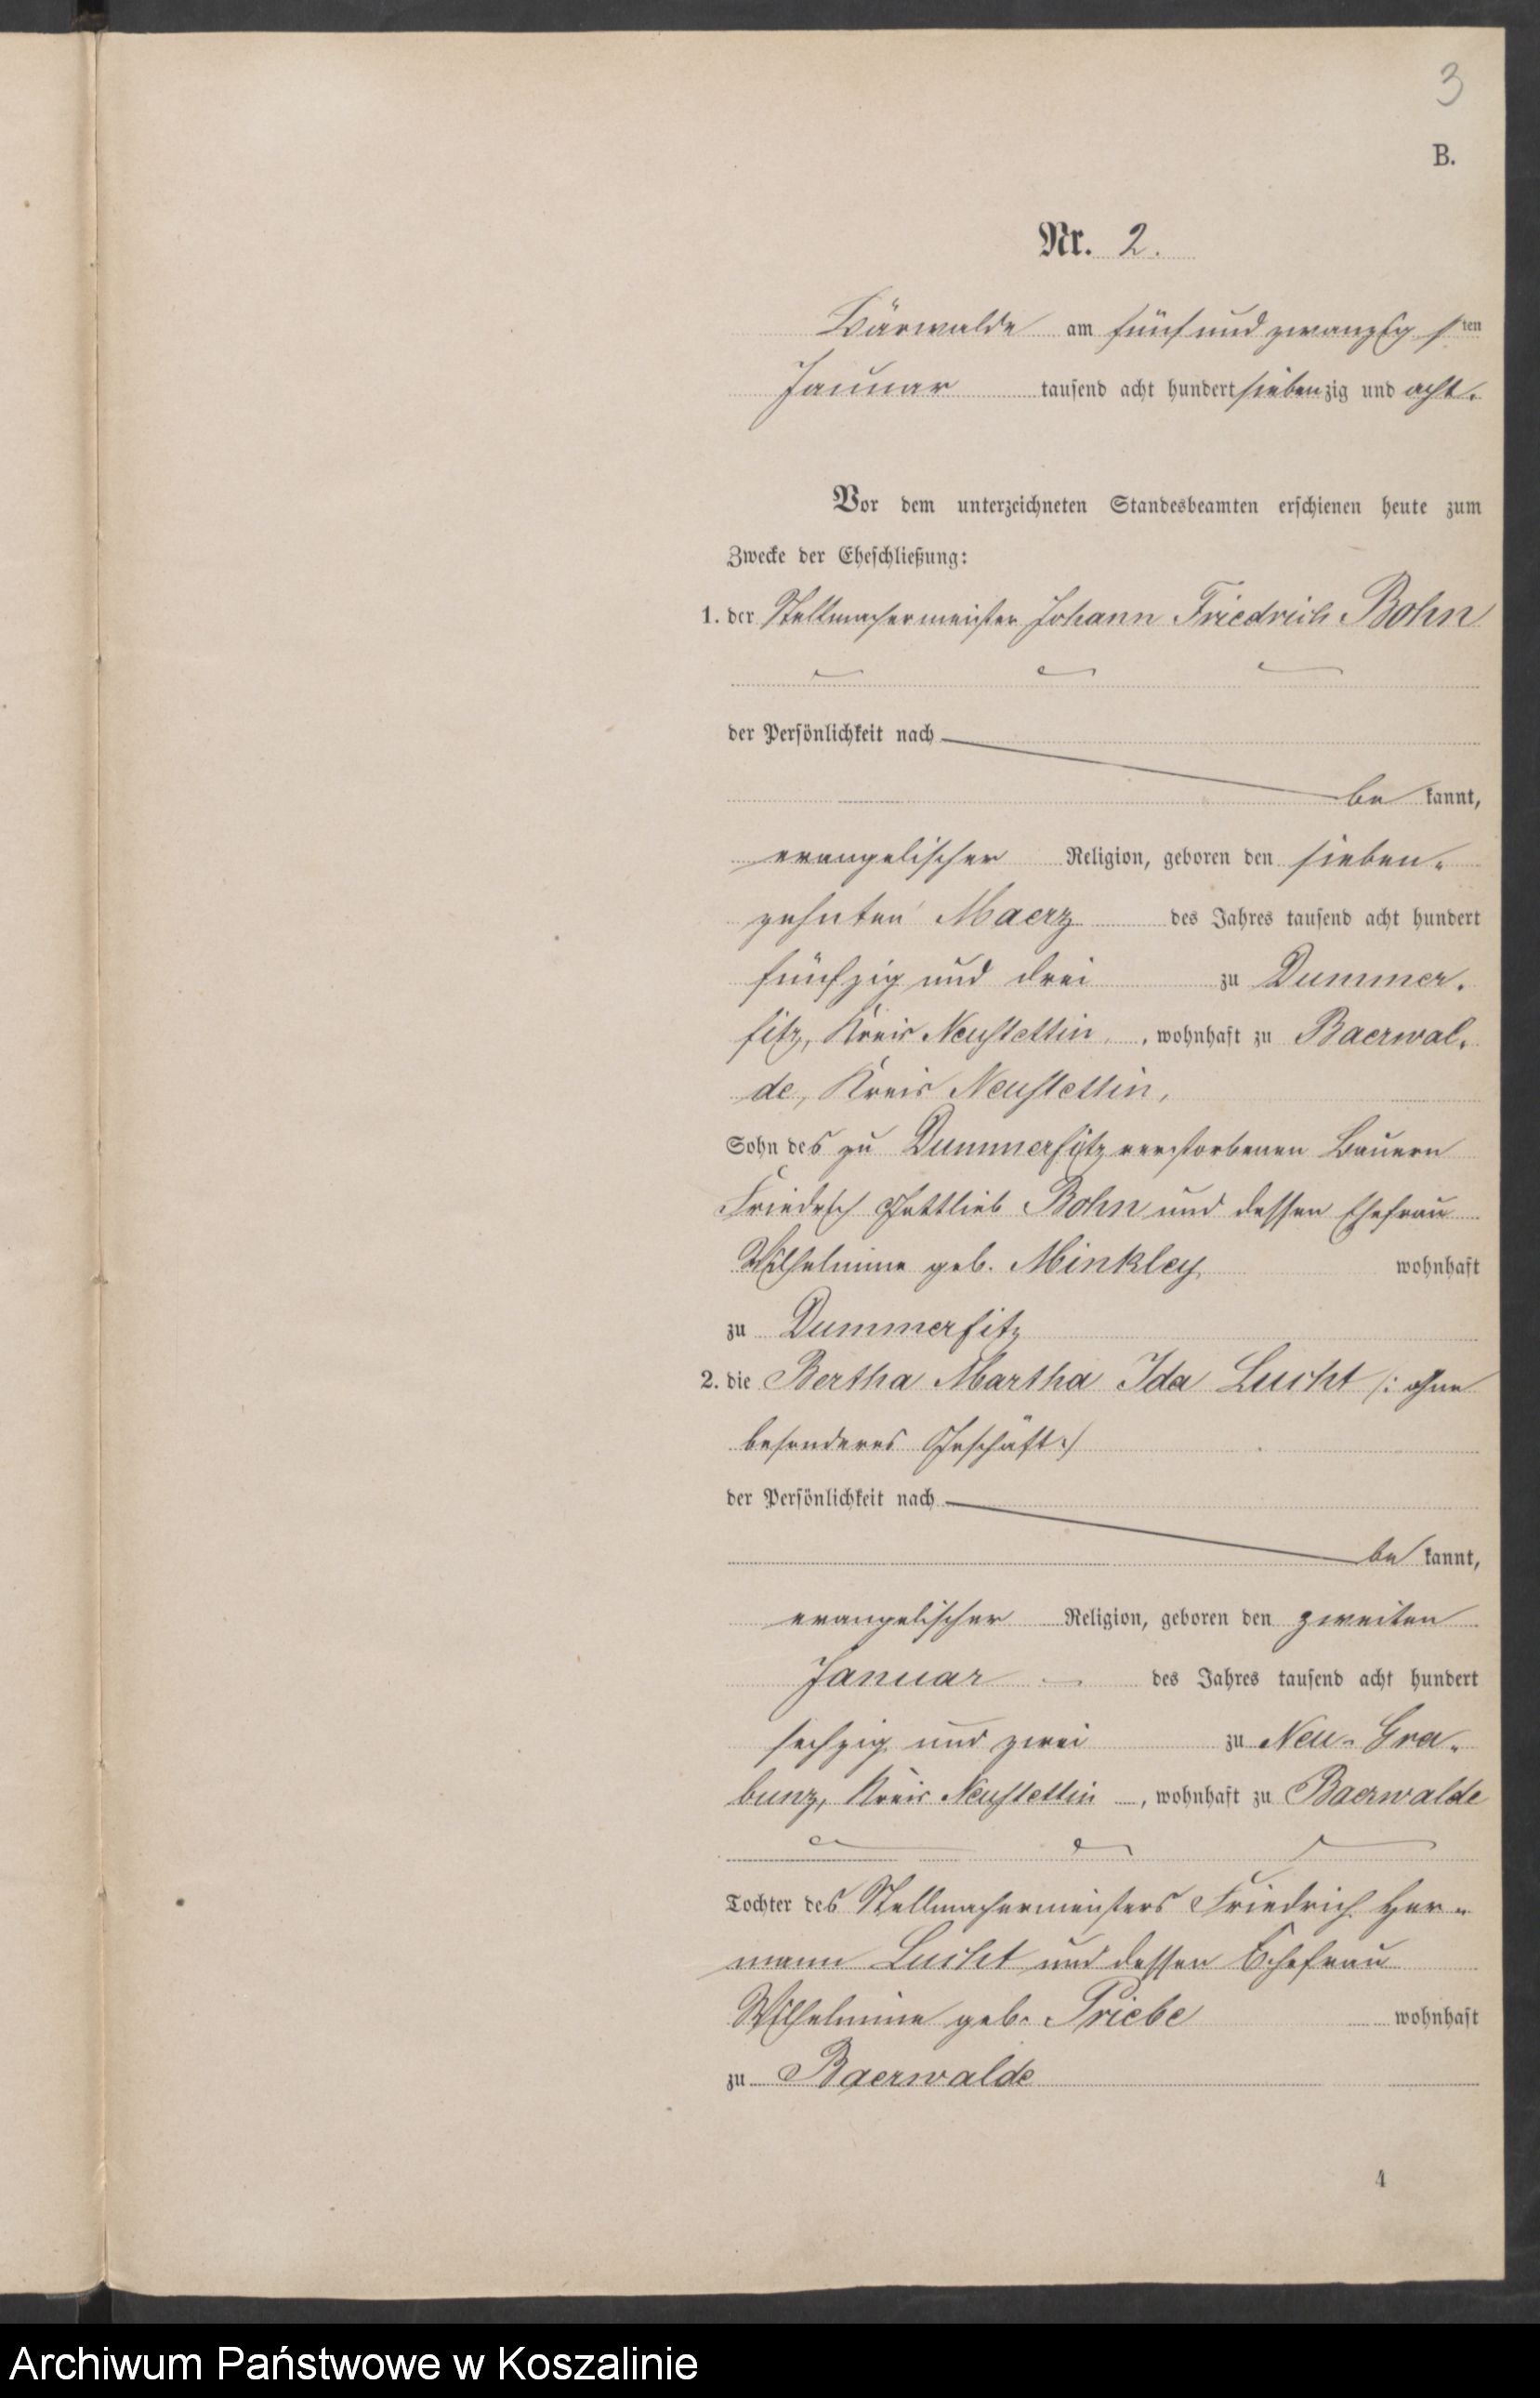 3
B.
Nr. 2.
Bärwalde am fünf und zwanzigsten
Januar tausend acht hundert siebenzig und acht.
Vor dem unterzeichneten Standesbeamten erschienen heute zum
Zwecke der Eheschließung:
1. der Stellmachermeister Johann Friedrich Bohn
der Persönlichkeit nach
be kannt,
evangelischer Religion, geboren den sieben-
zehnten Maerz des Jahres tausend acht hundert
fünfzig und drei zu Dummer-
fitz, Kreis Neustettin, wohnhaft zu Baerwal-
de, Kreis Neustettin,
Sohn des zu Dummerfitz verstorbenen Bauern
Friedrich Gottlieb Bohn und dessen Ehefrau
Wilhelmine geb. Minkley wohnhaft
zu Dummerfitz
2. die Bertha Martha Ida Lucht /: ohne
besonderes Geschäft :/
der Persönlichkeit nach
be kannt,
evangelischer Religion, geboren den zweiten
Januar des Jahres tausend acht hundert
sechzig und zwei zu Neu-Gra-
bunz, Kreis Neustettin, wohnhaft zu Baerwalde
Tochter des Stellmachermeisters Friedrich Her-
mann Lucht und dessen Ehefrau
Wilhelmine geb. Priebe wohnhaft
zu Baerwalde
4
Archiwum Państwowe w Koszalinie